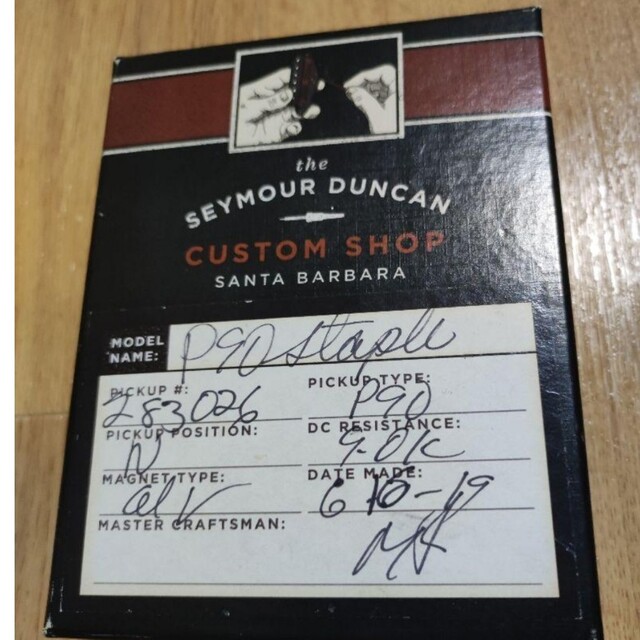 the
SEYMOUR DUNCAN
CUSTOM SHOP
SANTA BARBARA
MODEL NAME: P90 Staple
PICKUP #: 283026
PICKUP TYPE: P90
PICKUP POSITION: N
DC RESISTANCE: 9.0K
MAGNET TYPE: al V
DATE MADE: 6 10-19
MASTER CRAFTSMAN: